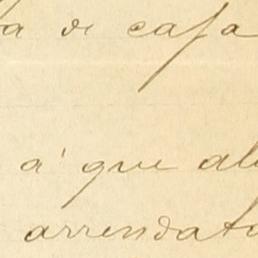 a de cafa
á que al
arrendat